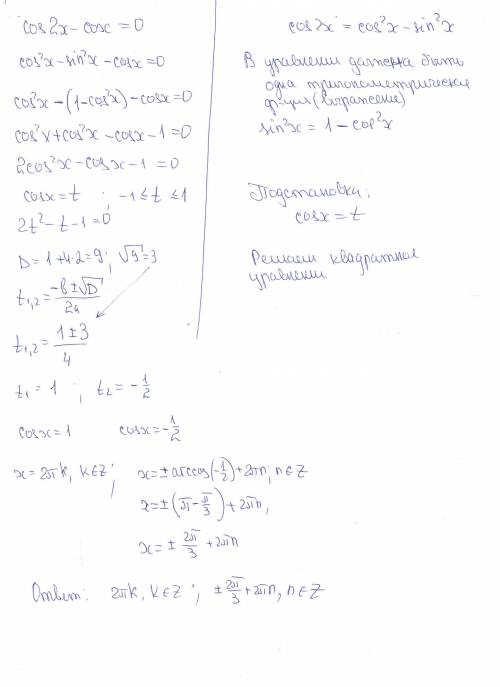 cos2x - cosx = 0
cos²x - sin²x - cosx = 0
cos²x - (1 - cos²x) - cosx = 0
cos²x + cos²x - cosx - 1 = 0
2cos²x - cosx - 1 = 0
cosx = t ; -1 ≤ t ≤ 1
2t² - t - 1 = 0
D = 1 + 4·2 = 9 ; √9 = 3
t₁,₂ = (-b ± √D) / 2a
t₁,₂ = (1 ± 3) / 4
t₁ = 1 ; t₂ = -1/2
cosx = 1 cosx = -1/2
x = 2πk, k∈Z ; x = ± arccos(-1/2) + 2πn, n∈Z
x = ± (π - π/3) + 2πn,
x = ± 2π/3 + 2πn
Ответ: 2πk, k∈Z ; ± 2π/3 + 2πn, n∈Z
cos2x = cos²x - sin²x
В уравнении должна быть
одна тригонометрическая
ф-ция (выражение)
sin²x = 1 - cos²x
Подстановка:
cosx = t
Решаем квадратное
уравнение